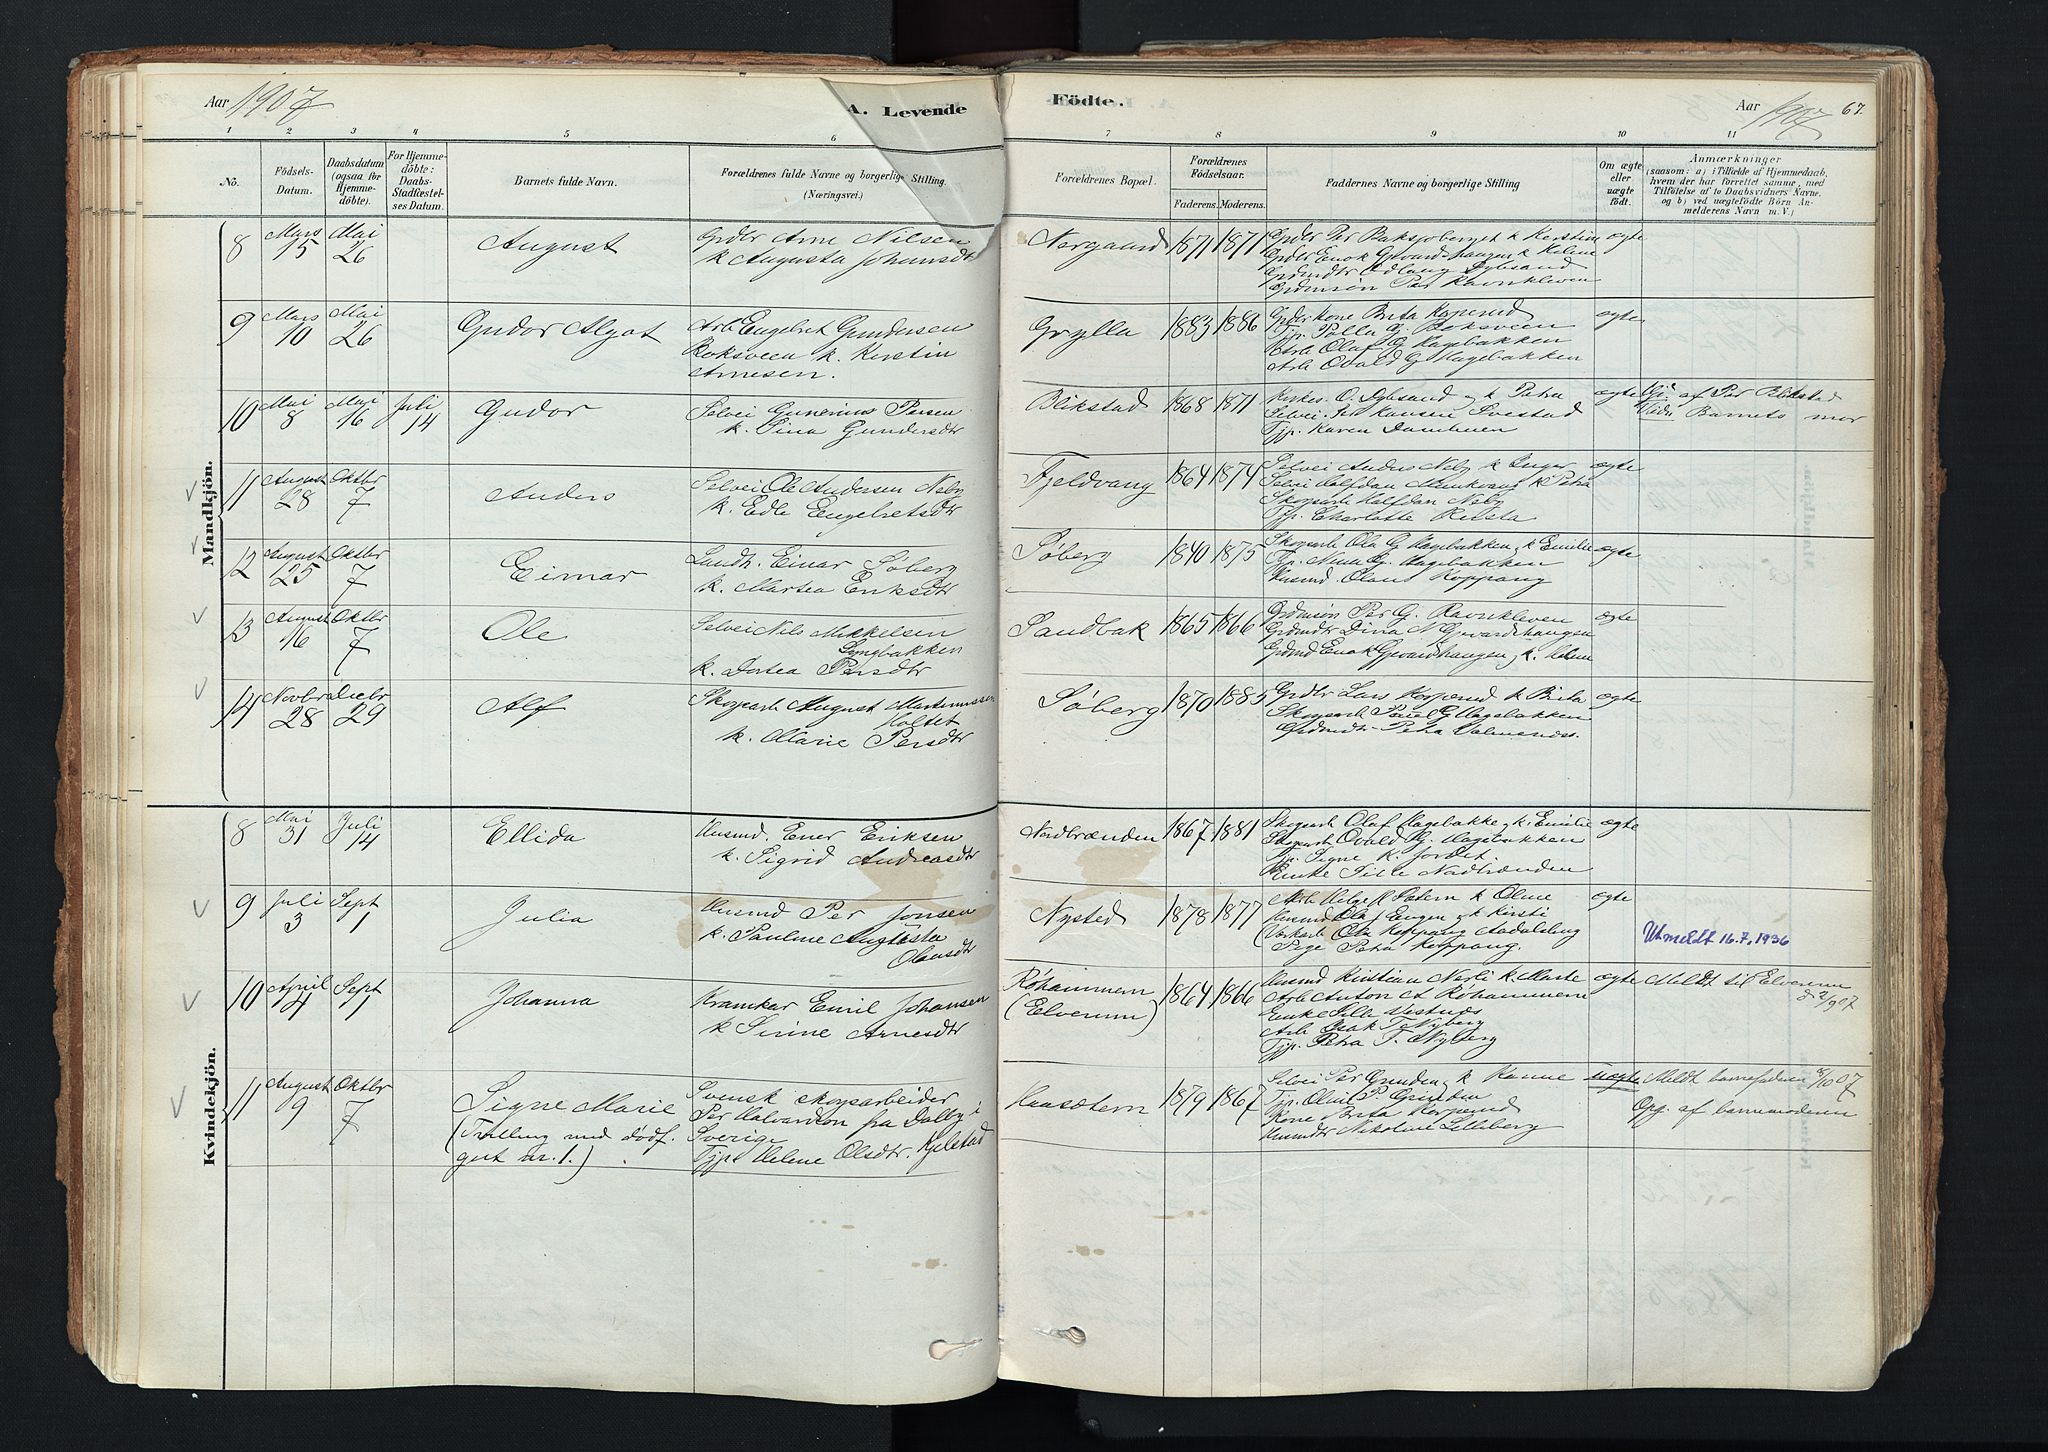 Aar 1907
A. Levende
Födte.
Aar 1907
67.
1 2 3 4 5 6 7 8 9 10 11
No.
Födsels-
Datum.
Daabsdatum
(ogsaa for
Hjemme-
döbte).
For Hjemme-
döbte:
Daabs-
Stadfæstel-
ses Datum.
Barnets fulde Navn.
Forældrenes fulde Navne og borgerlige Stilling.
(Næringsvei.)
Forældrenes Bopæl.
Forældrenes
Födselsaar.
Faderens. Moderens.
Faddernes Navne og borgerlige Stilling
Om ægte
eller
uægte
födt.
Anmærkninger
(saasom: a) i Tilfælde af Hjemmedaab,
hvem der har forrettet samme, med
Tilföielse af to Daabsvidners Navne,
og b) ved uægtefödte Börn An-
melderens Navn m. V.)
Mandkjön.
8 Mars 15 Mai 26 August
Grdbr Arne Nilsen
k Augusta Johansdtr
Norgaard 1871 1871
Grdbr Per Baksjøberget k Kerstine
Grdbr Enok Gjevardshaugen k Helene
Per Ravnkleven
ægte
9 Mars 10 Mai 26 Gudor Algot
Arb Engebret Gundersen
Boksveen k. Kerstin
Arnesen.
Grylla 1883 1886
Grdbr kone Brita Koperud
Tjp. Polla G. Boksveen
Arb Olaf G Hagebakken
Arb Ovald G Hagebakken
ægte
10 Mai 8 Mai 16 Juli 14 Gudor
Selvei Gunerius Persen
k. Sina Gundersdtr
Blikstad 1868 1871
Kirkes. O. Dybsand og k Petra
Selvei. Per Hansen Svestad
Tjp. Karen
ægte
af Per Blikstad
Barnets mor
11 August 28 Oktbr 7 Anders
Selvei Ole Andersen Neby
k. Edle Engebretsdtr
Fjeldvang 1864 1874
Selvei Anders Neby k Inger
Selvei Halfdan Munkvang k Petra
Skogarb Halfdan Neby
Tjp. Charlotte
ægte
12 August 25 Oktbr 7 Eimar
Landh. Einar Søberg
k. Martea Eriksdtr
Søberg 1840 1875
Skogarb Ola G Hagebakken, k Emilie
Tjp. Nina G. Hagebakken
Husmd. Olaus Koppang
ægte
13 August 16 Oktbr 7 Ole
Selvei Nils Mikkelsen
Lyngbakken
k. Dortea Persdtr
Sandbak 1865 1866
Grdmsøn Per G. Ravnkleven
Grdmdtr Dina N Gjevardshaugen
Grdmd Enok Gjevardshaugen og k. Helene
ægte
14 Novbr 28 Decbr 29 Alf
Skogarb August Martinussen
Holtet
k. Marie Persdtr
Søberg 1870 1885
Grdbr Lars Koperud k Brita
Skogarb Povel G Hagebakken
Grdmdtr Petra
ægte
Kvindekjön.
8 Mai 31 Juli 14 Ellida
Husmd. Ener Eriksen
k. Sigrid Andreasdtr
Nordbrænden 1867 1881
Skogarb Olaf Hagebakke og k. Emilie
Skogarb Ovald G. Hagebakken
Tjp. Signe K. Jordet.
Enke Sille Nordbrænden
ægte
9 Juli 3 Sept 1 Julia
Husmd Per Jonsen
k. Pauline Augusta
Olausdtr
Nysted 1878 1877
Arb Helge H Sætern k Oline
Husmd Olaf Engen og k Kirsti
Ola Koppang Aadalsling
Pige Petra Koppang.
ægte
Utmeldt 16.7.1936
10 April 4 Sept 1 Johanna
Kramkar Emil Johansen
k Sirine Arnesdtr
Røhammern
(Elverum)
1864 1866
Husmd Kristian Nerli k Marte
Arb Anton A Røhammern
Enke Sille
Arb Isak T. Nyberg
Tjp. Petra T. Nyberg
ægte
Meldt til Elverum
d 2/9 07
11 August 9 Oktbr 7
Signe Marie
(Tvilling med dødf.
gut nr. 1.)
Svensk skogsarbeider
Per Halvardson fra Dalby i
Sverige
Tjp. Helene Olsdtr. Kjelstad
Haasætern 1879 1867
Selvei Per Grinden k Hanne
Tjp. Oluf P Grinden
Kone Brita Korperud
Husmdtr Nikoline Lilleberg
uægte
Meldt barnefaderen 8/10 07
Opg. af barnemoderen